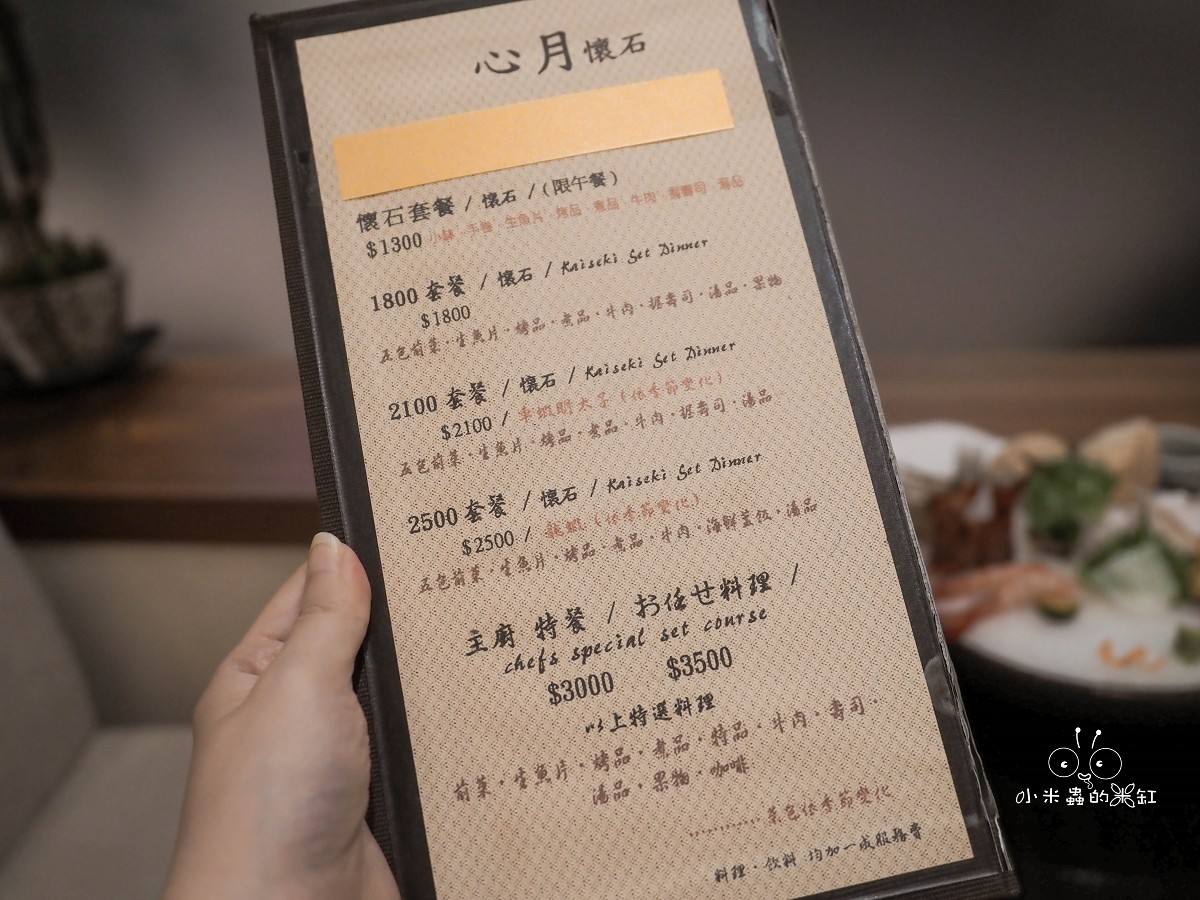 心月懷石
懷石套餐 / 懷石 / (限午餐)
$1300 小缽 手卷 生魚片 烤品 煮品 牛肉 握壽司 湯品
1800 套餐 / 懷石 / Kaiseki Set Dinner
$1800
五色前菜・生魚片・烤品・煮品・牛肉・握壽司・湯品・果物
2100 套餐 / 懷石 / Kaiseki Set Dinner
$2100 / 車蝦 (依季節變化)
五色前菜・生魚片・烤品・煮品・牛肉・握壽司・湯品
2500 套餐 / 懷石 / Kaiseki Set Dinner
$2500 / 龍蝦 (依季節變化)
五色前菜・生魚片・烤品・煮品・牛肉・海鮮蓋飯・湯品
主廚 特餐 / お任せ料理 /
chefs special set course
$3000 $3500
以上特選料理
前菜・生魚片・烤品・煮品・特品・牛肉・壽司・
湯品・果物・咖啡
............菜色依季節變化
料理・飲料 均加一成服務費
小米蟲的米缸